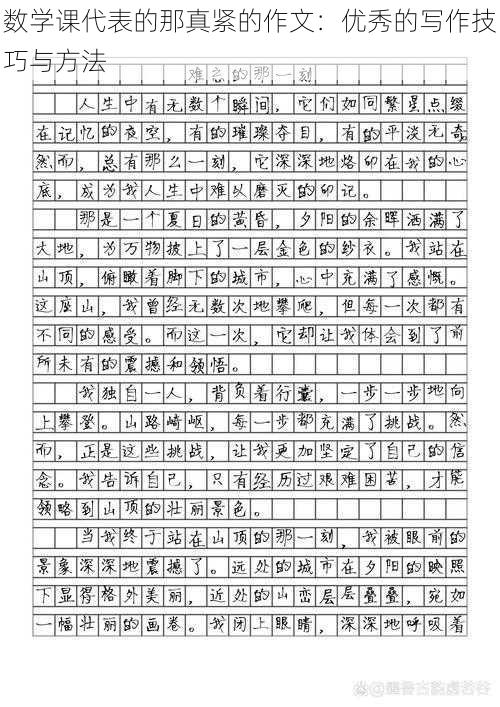 数学课代表的那真紧的作文：优秀的写作技
巧与方法
难忘的那一刻
人生中有无数个瞬间，它们如同繁星点缀
在记忆的夜空，有的璀璨夺目，有的平淡无奇
然而，总有那么一刻，它深深地烙印在我的心
底，成为我人生中难以磨灭的印记。
那是一个夏日的黄昏，夕阳的余晖洒满了
大地，为万物披上了一层金色的纱衣。我站在
山顶，俯瞰着脚下的城市，心中充满了感慨。
这座山，我曾经无数次地攀爬，但每一次都有
不同的感受。而这一次，它却让我体会到了前
所未有的震撼和领悟。
我独自一人，背负着行囊，一步一步地向
上攀登。山路崎岖，每一步都充满了挑战。然
而，正是这些挑战，让我更加坚定了自己的信
念。我告诉自己，只有经历过艰难困苦，才能
领略到山顶的壮丽景色。
当我终于站在山顶的那一刻，我被眼前的
景象深深地震撼了。远处的城市在夕阳的映照
下显得格外美丽，近处的山峦层层叠叠，宛如
一幅壮丽的画卷。我闭上眼睛，深深地呼吸着